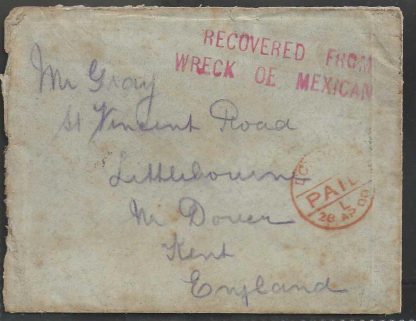 RECOVERED FROM
WRECK OE MEXICAN
Mr Gray
St Vincent Road
Littlebourne
Nr Dover
Kent
England
PAID
L
28 AP 00